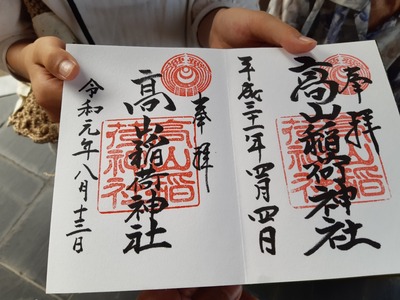 奉拝
高山稲荷神社
平成三十一年四月四日
奉拝
高山稲荷神社
令和元年八月十三日
高山稲荷神社
高山稲荷神社